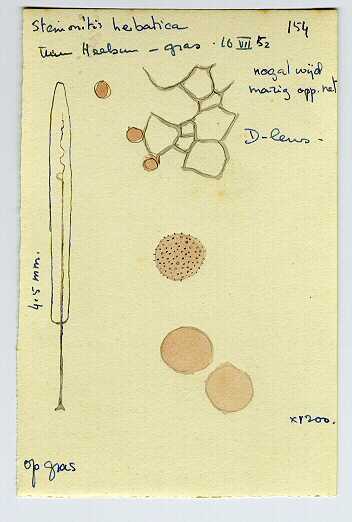 Stemonitis herbatica
154
tuin Heelsum – gras . 16 VII 52
nogal wijd
mazig opp. net
D-lens –
4.5 mm.
x 1200.
op gras